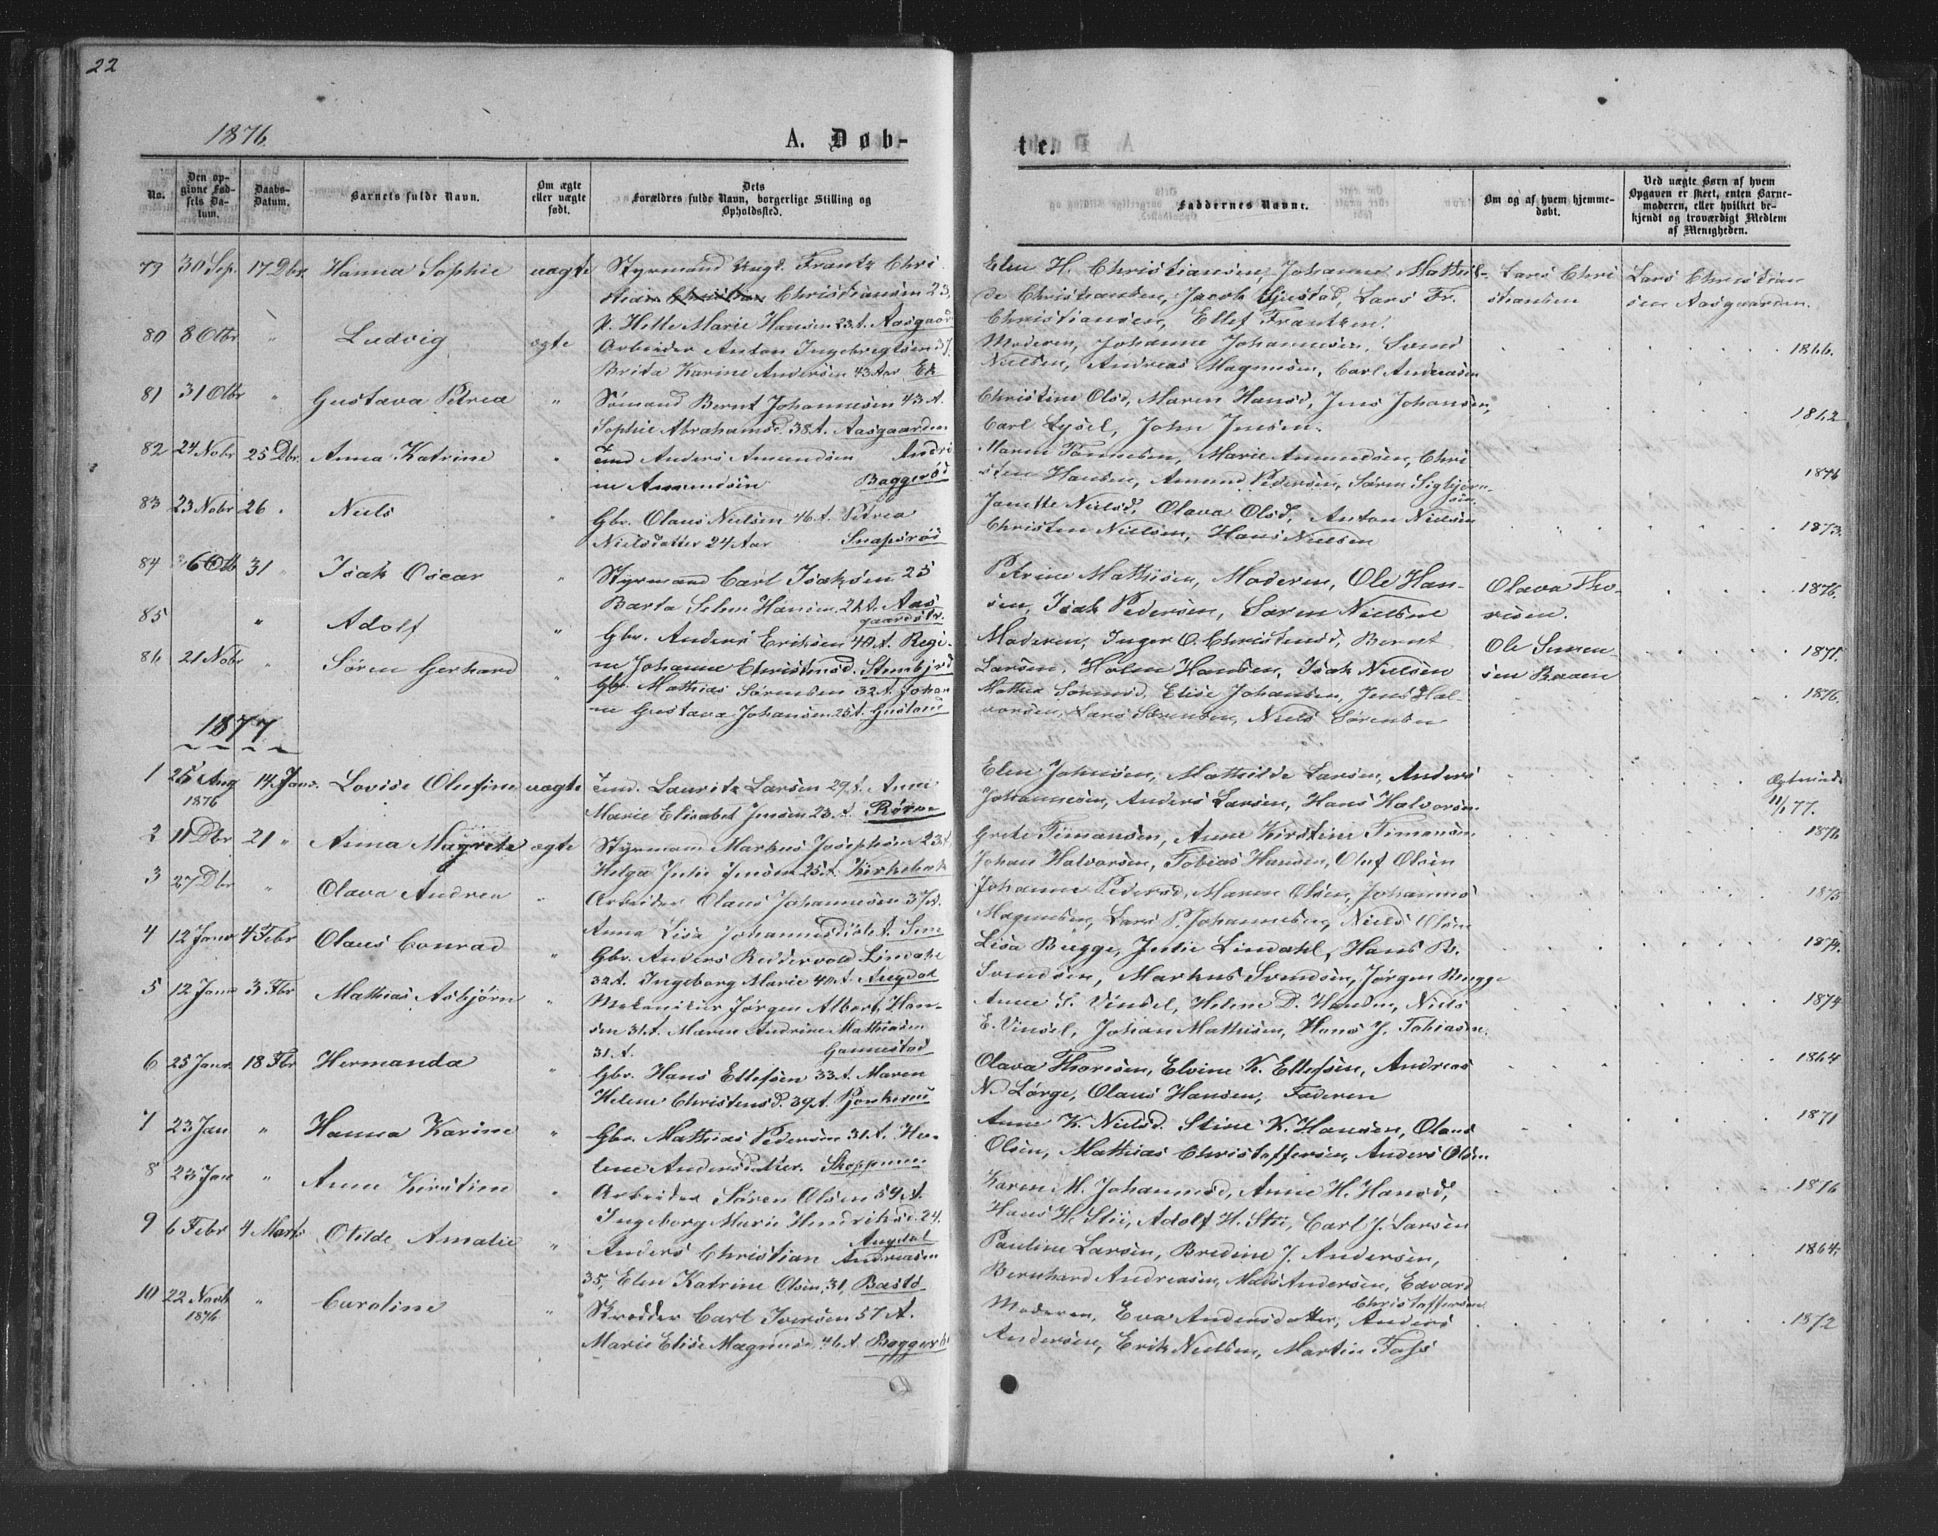 22
1876.
A. Døb-
te.
No.
Den op-
givne Fød-
sels Da-
tum.
Daabs-
Datum.
Barnets fulde Navn.
Om ægte
eller uægte
født.
Dets
Forældres fulde Navn, borgerlige Stilling og
Opholdssted.
Faddernes Navne.
Om og af hvem hjemme-
døbt.
Ved uægte Børn af hvem
Opgaven er skeet, enten Barne-
moderen, eller hvilket be-
kjendt og troværdigt Medlem
af Menigheden.
79 30 Sep. 17 Dbr. Hanna Sophie uægte Styrmand Ungk. Frantz Chri
Christiansen 23,
P. Helle Marie Hansen 23 A. Aasgaard
Elen H. Christiansen, Johanne Mathil-
de Christiansen, Jacob Gjestad, Lars Fr.
Christiansen, Ellef Frantzen.
Lars Chri
stiansen
Lars Christian
sen Aasgaarden.
80 8 Otbr " Ludvig ægte Arbeider Anton Ingebregtsen 37.
Brita Karine Andersen 43 Aar Ek
Moderen, Johanne Johannesen, Svend
Nielsen, Andreas Magnusen, Carl Andreasen
1866.
81 31 Otbr " Gustava Petrea " Sømand Bernt Johannesen 43 A.
Sophie Abrahamsd. 38 A. Aasgaarden
Christine Olsd, Maren Hansd, Jens Johansen,
Carl Lysel, John Jensen.
1862
82 24 Nobr 25 Dbr. Anna Katrine " Anders Amundsen Andri
ne Amundsen Baggerød
Maren Tønnesen, Marie Amundsen, Chri
sten Hansen, Amund Pedersen, Søren Sigbjørn-
sen.
1876
83 23 Nobr 26 " Niels " Gbr. Olaus Nielsen 46 A. Petrea
Nielsdatter 24 Aar Snapsrøs
Janette Nielsd, Olava Olsd, Anton Nielsen
Christen Nielsen, Hans Nielsen
1873.
84 6 Otb 31 " Isak Oscar " Styrmand Carl Isaksen 25
Barta Selene Hansen 21 A. Aas
gaardstr.
Petrine Mathisen, Moderen, Ole Han-
sen, Isak Pedersen, Søren Nielsen
Olava Tho-
risen.
1876.
85 " Adolf " Gbr. Anders Eriksen 40 A. Regi-
ne Johanne Christensd. Stenbjerd
Moderen, Inger O. Christensd, Bernt
Larsen, Holm Hansen, Isak Nielsen
Ole Simen-
sen Baaen
1871.
86 21 Nobr " Søren Gerhard " Gbr. Mathias Sørensen 32 A. Johan
ne Gustava Johansen 25 A. Gustand
Mathea Sørensd, Elise Johansen, Jens Hal-
vorsen, Lars Sørensen, Niels Sørensen
1876.
1877
1 25 Aug 14 Janr. Lovise Olufine uægte Lauritz Larsen 29 A. Anne
1876
Marie Elisabet Jensen 23 A. Rørve
Elen Johnsen, Mathilde Larsen, Anders
Johannesen, Anders Larsen, Hans Halvorsen
11/1 77.
2 11 Dbr 21 " Anna Magrete ægte Styrmand Markus Josephsen 23 A.
Helga Julie Jensen 25 A. Kirkebak
Grete Timansen, Anne Kirstine Timansen
Johan Halvorsen, Tobias Hansen, Oluf Olsen
1876
3 27 Dbr " Olava Andrea " Arbeider Olaus Johannesen 37 A.
Anna Lisa Johannesd
Johanne Pedersd, Maren Olsen, Johannes
Magnusen, Lars P. Johannesen, Niels Olsen
1873
4 12 Janr 4 Febr Olaus Conrad " Gbr. Anders Reddervold Lindahl
32 A. Ingeborg Marie 40 A. Augdal
Lisa Bugge, Julie Lindahl, Hans B.
Svendsen, Markus Svendsen, Jørgen Bugge
1874.
5 12 Janr 3 Fbr Mathias Asbjørn " Mekanikus Jørgen Albert Han-
sen 31 A. Maren Andrine Mathiasen
31 A. Gannestad
Anne S. Vinsel, Helene D. Hansen, Niels
E. Vinsel, Johan Mathisen, Hans J. Tobiasen.
1874
6 25 Janr 18 Fbr Hermanda " Gbr. Hans Ellefsen 33 A. Maren
Helene Christensd. 39 A.
Olava Thorisen, Elvine K. Ellefsen, Andreas
N. Lørge, Olaus Hansen, Faderen
1864
7 23 Jan " Hanna Karine " Gbr. Mathias Pedersen 31 A. He-
lene Andersdatter. Skoppum
Anne K. Nielsd. Stine K. Hansen, Olaus
Olsen, Mathias Christoffersen, Anders Olsen
1871
8 23 Jan " Anne Kirstine " Arbeider Søren Olsen 54 A.
Ingeborg Marie Hendriksd. 24.
Augdal
Karen M. Johannesd, Anne H. Hansd,
Hans H. Stii, Adolf H. Stii, Carl J. Larsen
1876
9 6 Febr 4 Marts Otilde Amalie " Anders Christian Andreasen
35, Elen Katrine Olsen, 31, Bastø
Pauline Larsen, Bredine J. Andersen,
Bernhard Andreasen, Mads Andersen, Edvard
Christoffersen
1864.
10 22 Novb " Caroline " Skrædder Carl Iversen 57 A.
1876
Marie Elise Magnusd. 46 A. Baggerød
Moderen, Eva Andersdatter, Anders
Andersen, Erik Nielsen, Martin Foss
1872